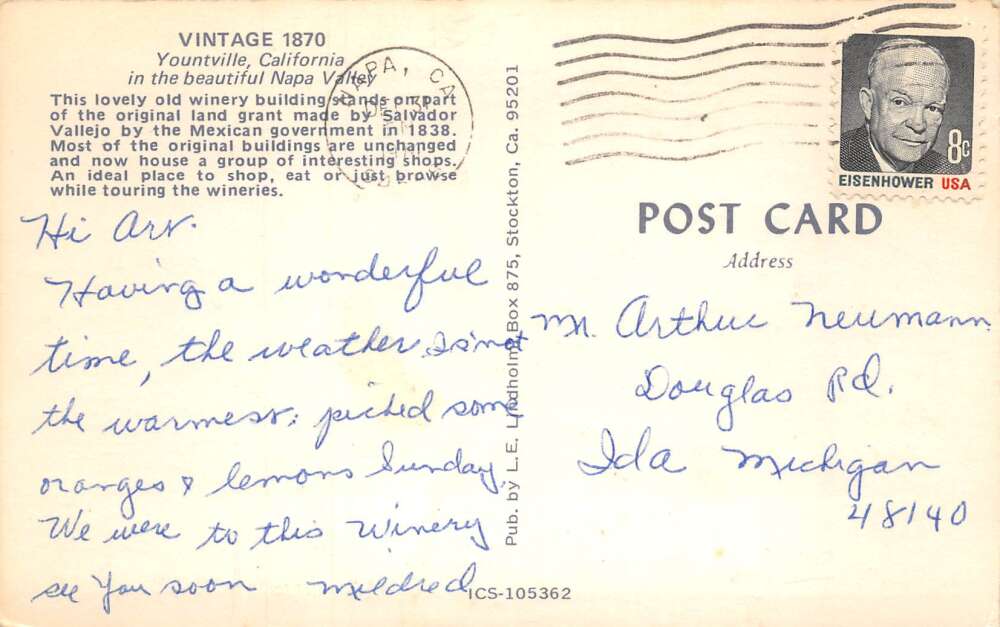 VINTAGE 1870
Yountville, California
in the beautiful Napa Valley
This lovely old winery building stands on part
of the original land grant made by Salvador
Vallejo by the Mexican government in 1838.
Most of the original buildings are unchanged
and now house a group of interesting shops.
An ideal place to shop, eat or just browse
while touring the wineries.
Hi Arv.
Having a wonderful
time, the weather is not
the warmest; picked some
oranges & lemons Sunday,
We were to this Winery
see You soon Mildred
Pub. by L.E. Lindholm, Box 875, Stockton, Ca. 95201
ICS-105362
NAPA, CA
8c
EISENHOWER USA
POST CARD
Address
Mr. Arthur Neumann
Douglas Rd.
Ida Michigan
48140